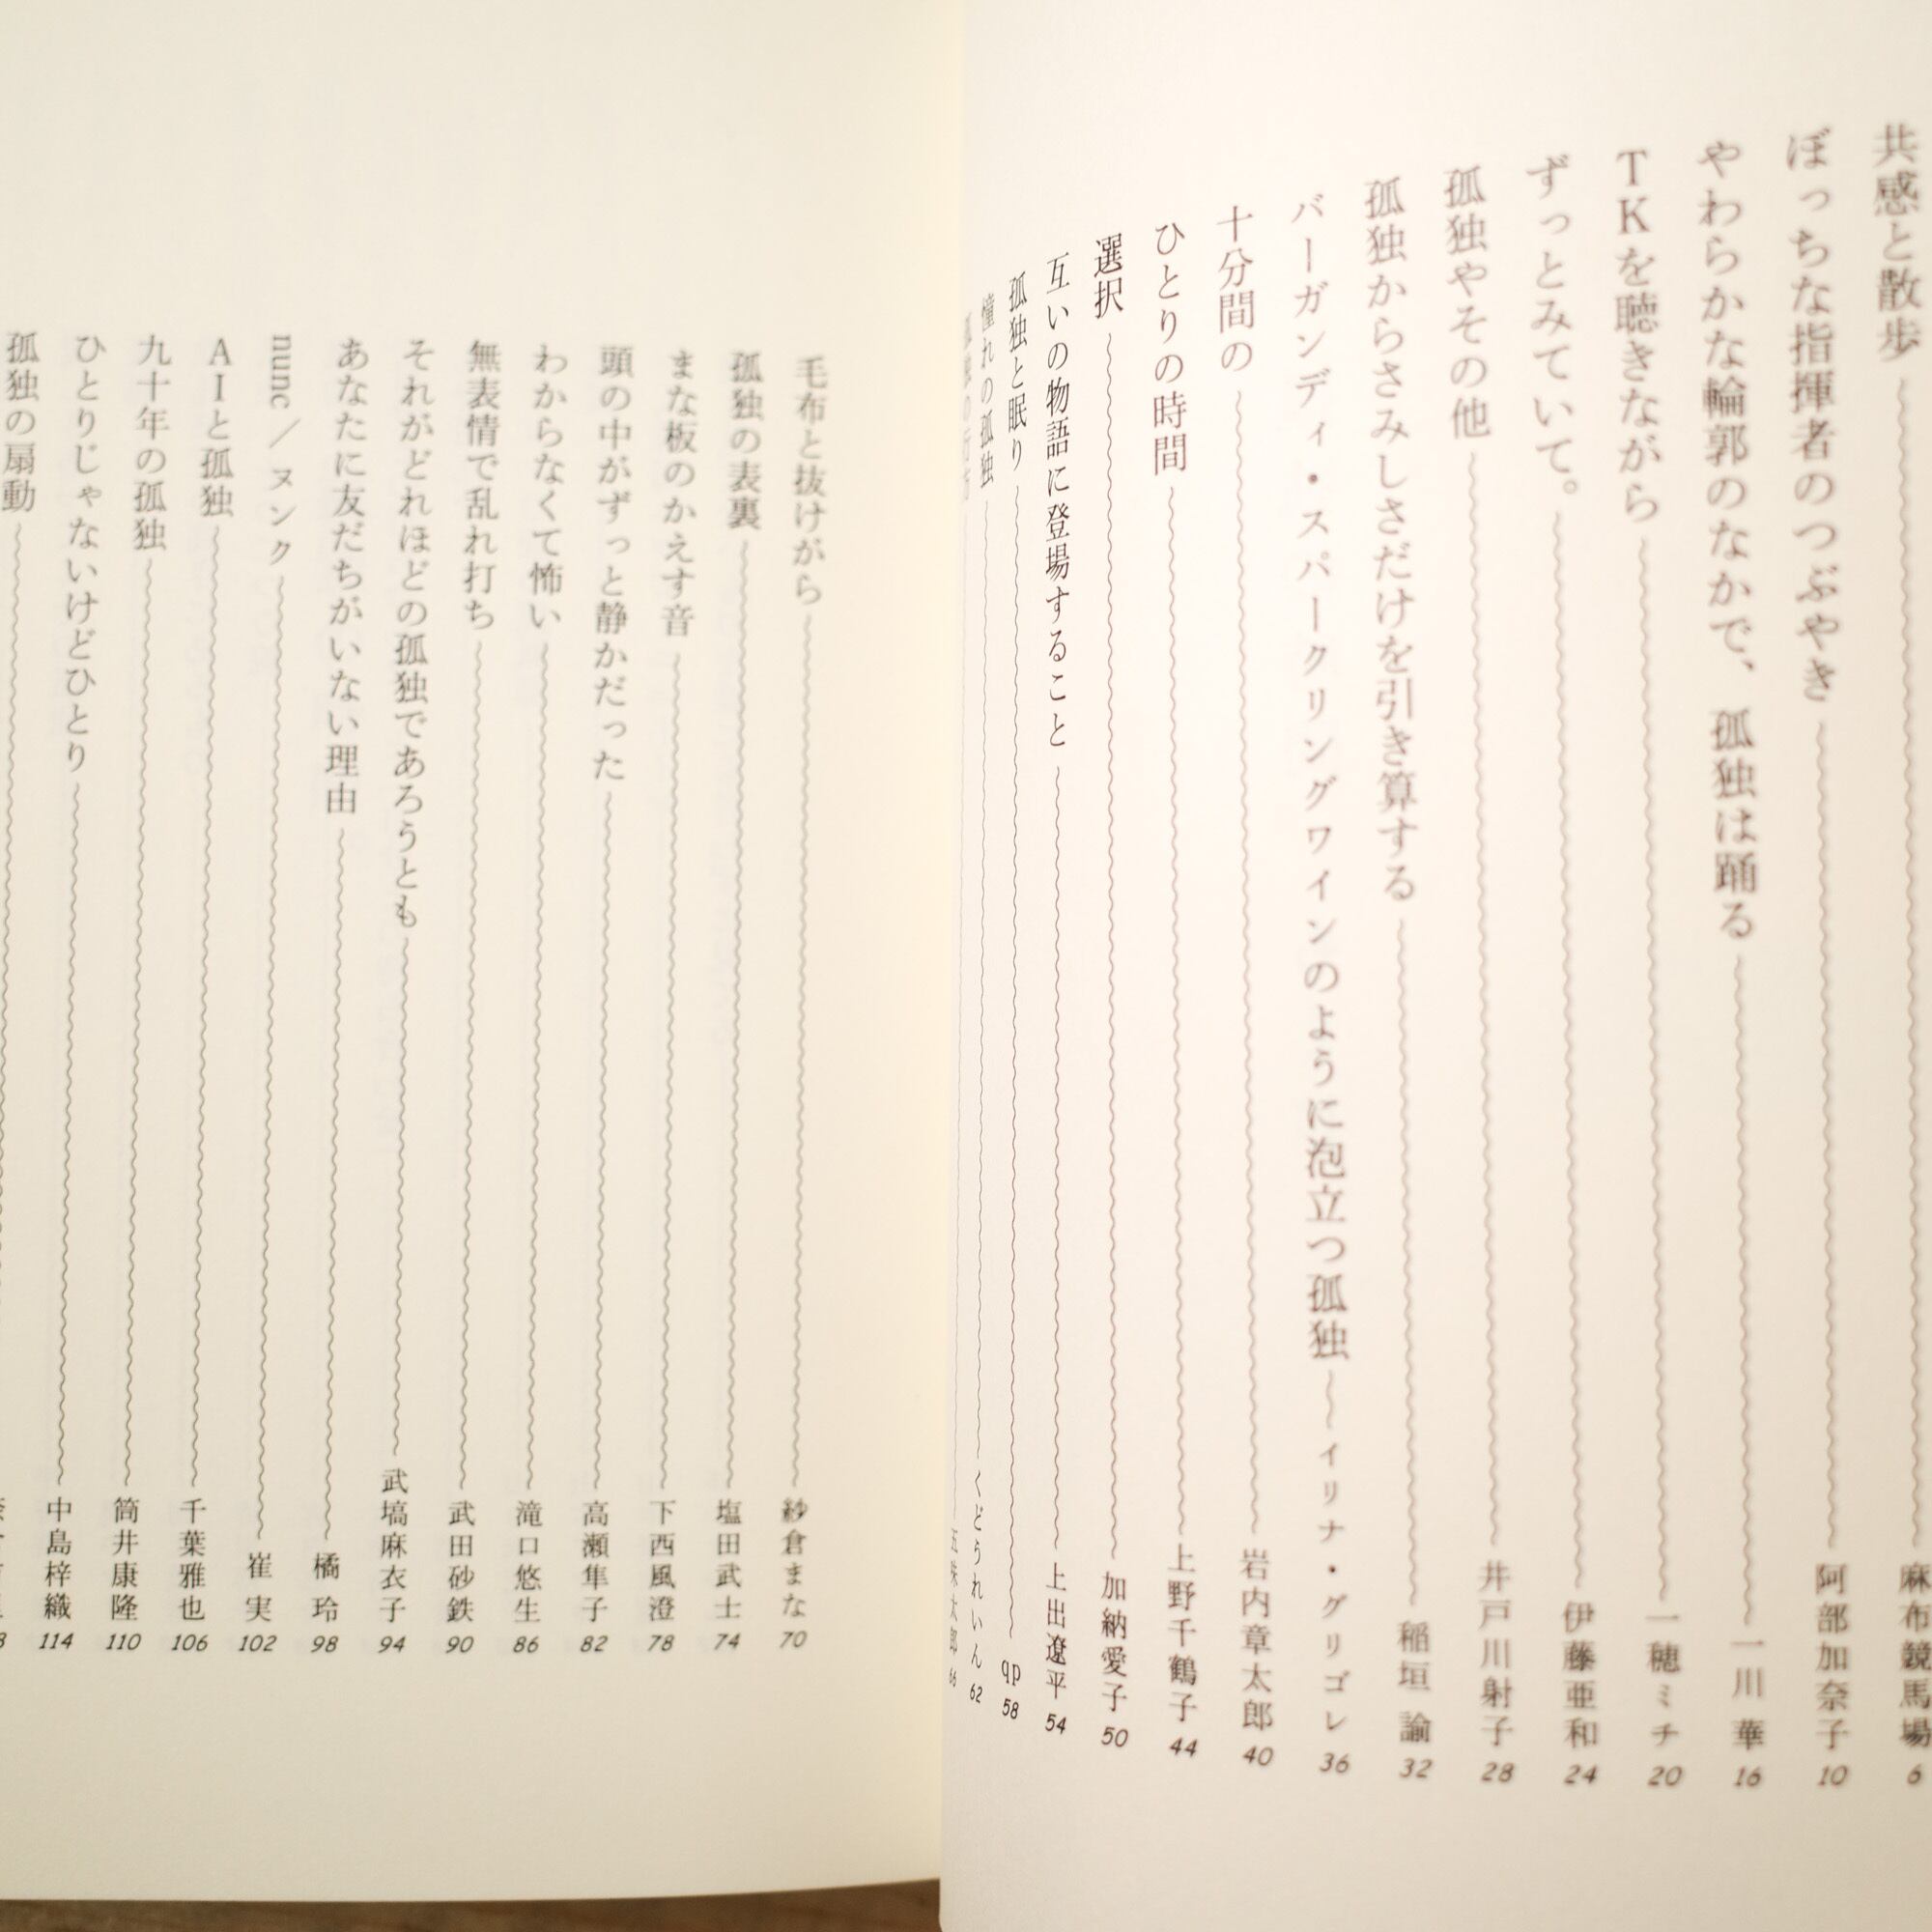 共感と散歩 麻布競馬場 6
ぼっちな指揮者のつぶやき 阿部加奈子 10
やわらかな輪郭のなかで、孤独は踊る 一川 華 16
TKを聴きながら 一穂ミチ 20
ずっとみていて。 伊藤亜和 24
孤独やその他 井戸川射子 28
孤独からさみしさだけを引き算する 稲垣 諭 32
バーガンディ・スパークリングワインのように泡立つ孤独 イリナ・グリゴレ 36
十分間の 岩内章太郎 40
ひとりの時間 上野千鶴子 44
選択 加納愛子 50
互いの物語に登場すること 上出遼平 54
孤独と眠り qp 58
憧れの孤独 くどうれいん 62
五味太郎 66
毛布と抜けがら 紗倉まな 70
孤独の表裏 塩田武士 74
まな板のかえす音 下西風澄 78
頭の中がずっと静かだった 高瀬隼子 82
わからなくて怖い 滝口悠生 86
無表情で乱れ打ち 武田砂鉄 90
それがどれほどの孤独であろうとも 武塙麻衣子 94
あなたに友だちがいない理由 橘 玲 98
nunc／ヌンク 崔 実 102
AIと孤独 千葉雅也 106
九十年の孤独 筒井康隆 110
ひとりじゃないけどひとり 中島梓織 114
孤独の扇動